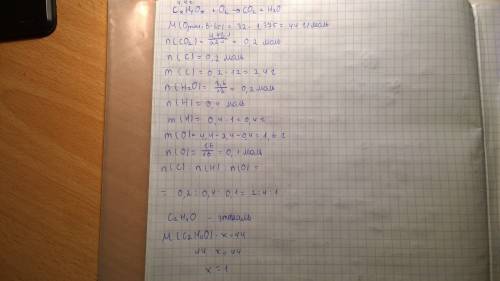 4,4г
CₓHᵧOz + O₂ → CO₂ + H₂O
M(Орган. в-ва) = 32 · 1,375 = 44 г/моль
n(CO₂) = = 0,2 моль
n(C) = 0,2 моль
m(C) = 0,2 · 12 = 2,4 г
n(H₂O) = 3,6/18 = 0,2 моль
n(H) = 0,4 моль
m(H) = 0,4 · 1 = 0,4 г
m(O) = 4,4 - 2,4 - 0,4 = 1,6 г
n(O) = 1,6/16 = 0,1 моль
n(C) : n(H) : n(O) =
= 0,2 : 0,4 : 0,1 = 2:4:1
C₂H₄O - этаналь
M(C₂H₄O) · x = 44
44 x = 44
x = 1